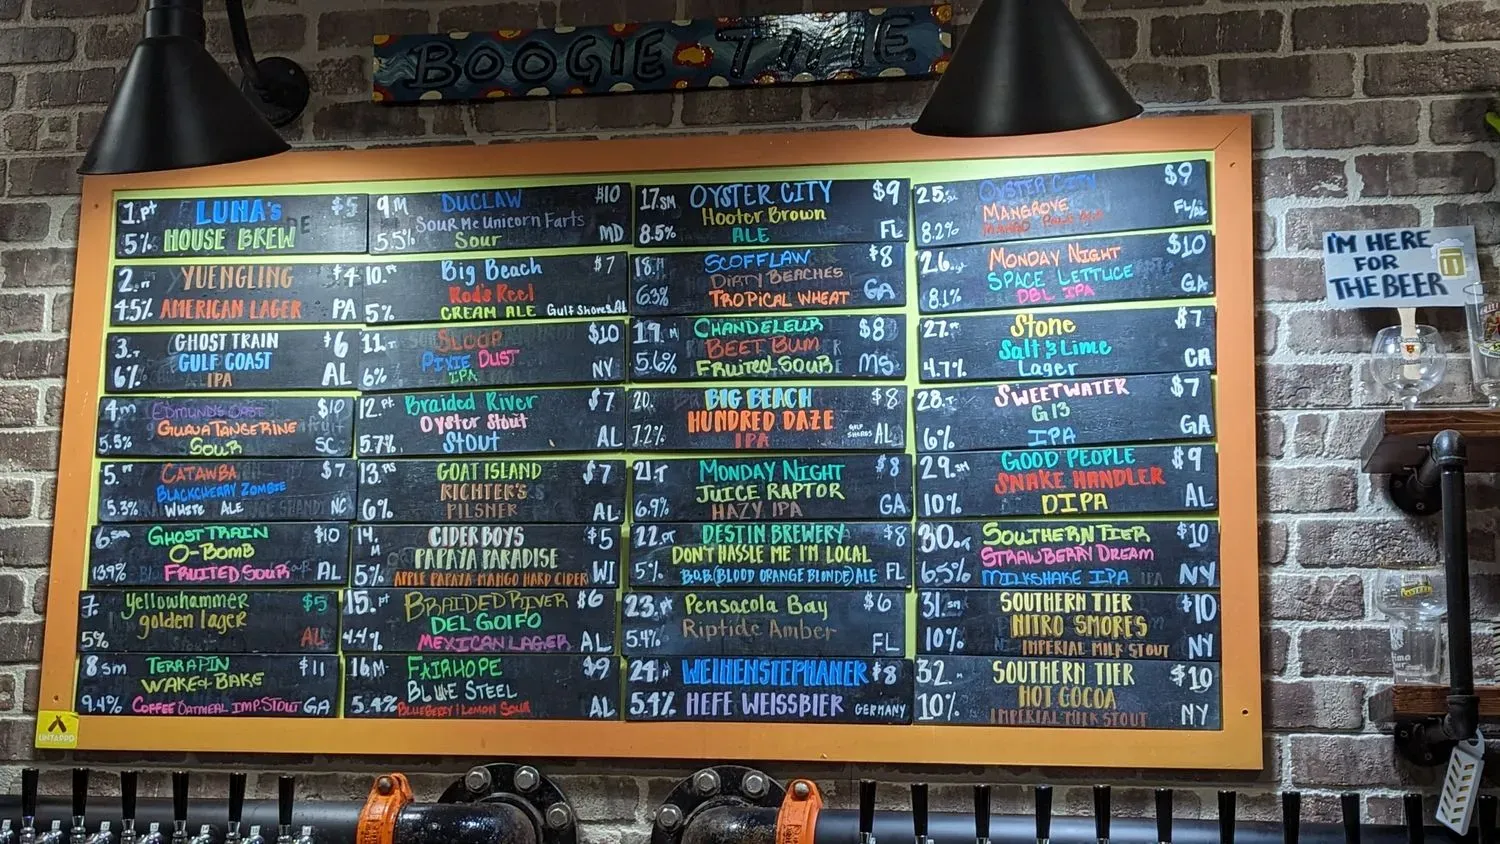 BOOGIE TIME
1. pt LUNA'S $5
5% HOUSE BREW
2. YUENGLING $4
4.5% AMERICAN LAGER PA
3. T GHOST TRAIN $6
GULF COAST
6% IPA AL
4 m EDMUND'S OAST $10
GUAVA TANGERINE
5.5% SOUR SC
5. CATAWBA $7
BLACKCHERRY ZOMBIE
5.3% WHITE ALE NC
6 sm GHOST TRAIN $10
O-BOMB
13.9% FRUITED SOUR AL
7. Yellowhammer $5
golden lager
5% AL
8 sm TERRAPIN $11
WAKE & BAKE
9.4% COFFEE OATMEAL IMP. STOUT GA
9 M DUCLAW $10
SOUR ME UNICORN FARTS
5.5% SOUR MD
10. Big Beach $7
Rod's Reel
5% CREAM ALE Gulf Shores, AL
11. T SLOOP $10
PIXIE DUST
6% IPA NY
12. pt Braided River $7
Oyster Stout
5.7% STOUT AL
13. GOAT ISLAND $7
RICHTER'S
6% PILSNER AL
14. M CIDERBOYS $5
PAPAYA PARADISE
5% APPLE PAPAYA MANGO HARD CIDER WI
15. pt BRAIDED RIVER $6
DEL GOLFO
4.4% MEXICAN LAGER AL
16. M FAIRHOPE $9
BLUE STEEL
5.4% BLUEBERRY LEMON SOUR AL
17. SM OYSTER CITY $9
Hooter Brown
8.5% ALE FL
18. SCOFFLAW $8
DIRTY BEACHES
6.3% TROPICAL WHEAT GA
19. M CHANDELEUR $8
BEET BUM
5.6% FRUITED SOUR MS
20. BIG BEACH $8
HUNDRED DAZE
7.2% IPA GULF SHORES AL
21. T MONDAY NIGHT $8
JUICE RAPTOR
6.9% HAZY IPA GA
22. PT DESTIN BREWERY $8
DON'T HASSLE ME I'M LOCAL
5% B.O.B. (BLOOD ORANGE BLONDE) ALE FL
23. pt Pensacola Bay $6
Riptide Amber
5.4% FL
24. WEIHENSTEPHANER $8
5.4% HEFE WEISSBIER GERMANY
25. OYSTER CITY $9
MANGROVE
8.2% MANGO PALE ALE FL/AL
26. MONDAY NIGHT $10
SPACE LETTUCE
8.1% DBL IPA GA
27. Stone $7
Salt & Lime
4.7% Lager CA
28. T SWEETWATER $7
G13
6% IPA GA
29. SM GOOD PEOPLE $9
SNAKE HANDLER
10% DIPA AL
30. T SOUTHERN TIER $10
STRAWBERRY DREAM
6.5% MILKSHAKE IPA NY
31. sm SOUTHERN TIER $10
NITRO SMORES
10% IMPERIAL MILK STOUT NY
32. SOUTHERN TIER $10
HOT COCOA
10% IMPERIAL MILK STOUT NY
UNTAPPD
I'M HERE
FOR
THE BEER